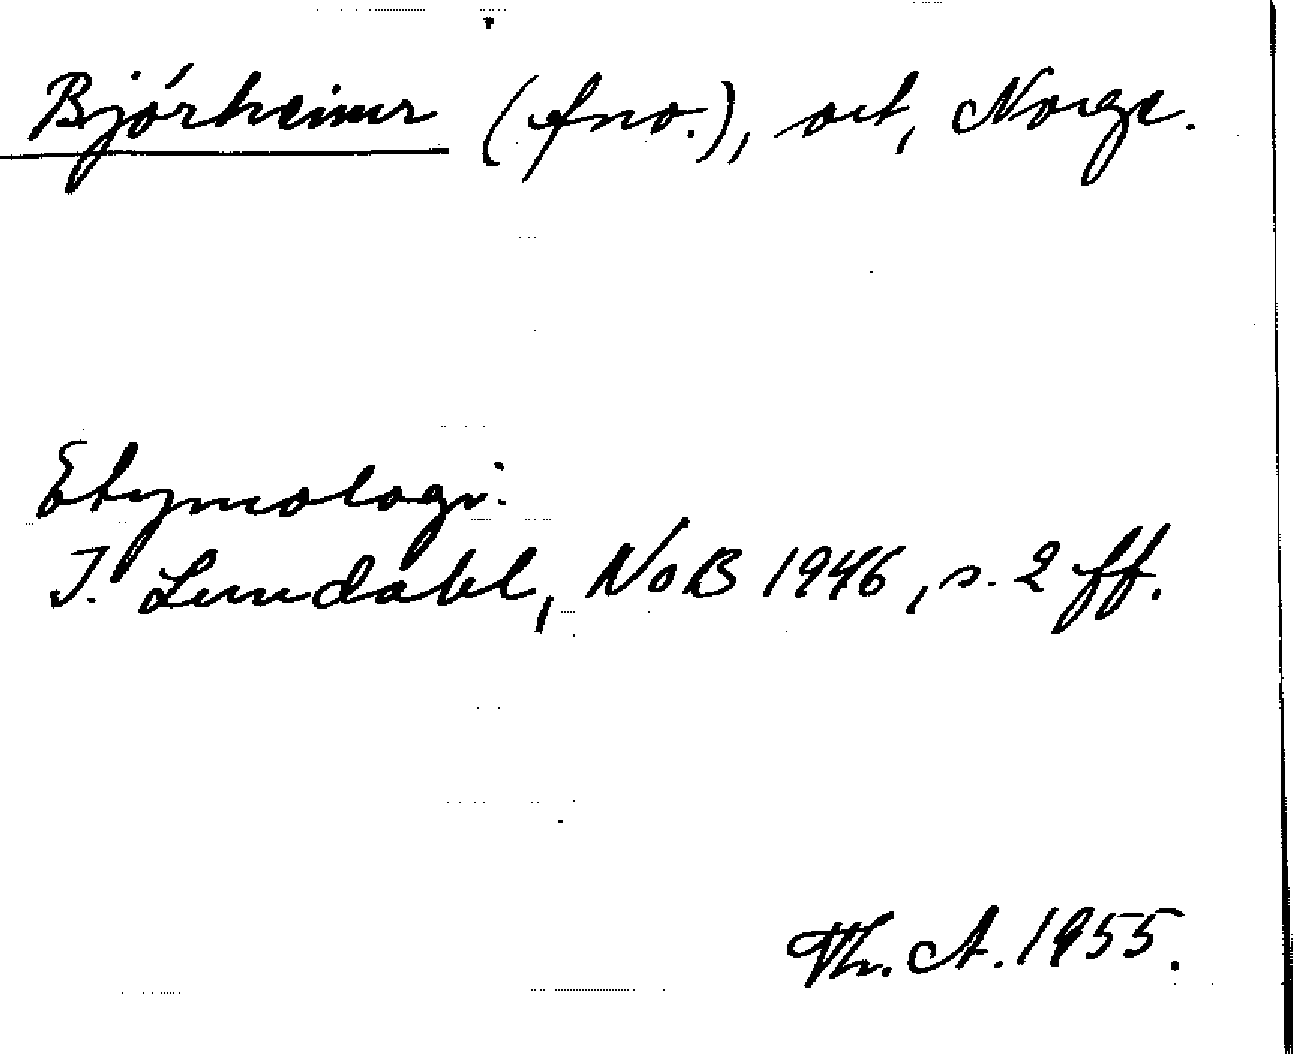 Bjórheimr (fno.), ort, Norge.
Etymologi:
I. Lundahl, NoB 1946, s. 2 ff.
Th. A. 1955.